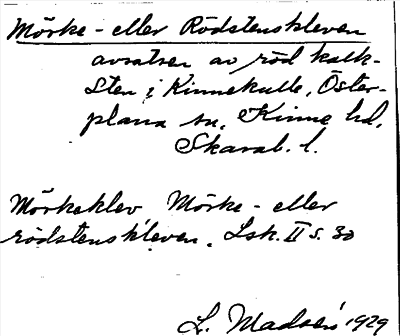 Mörke- eller Rödstenskleven
avsatsen av röd kalk-
sten i Kinnekulle, Öster-
plana sn, Kinne hd,
Skarab. l.
Mörkeklev Mörke- eller
rödstenskleven. Lsk. II s. 30
L. Madsén 1929